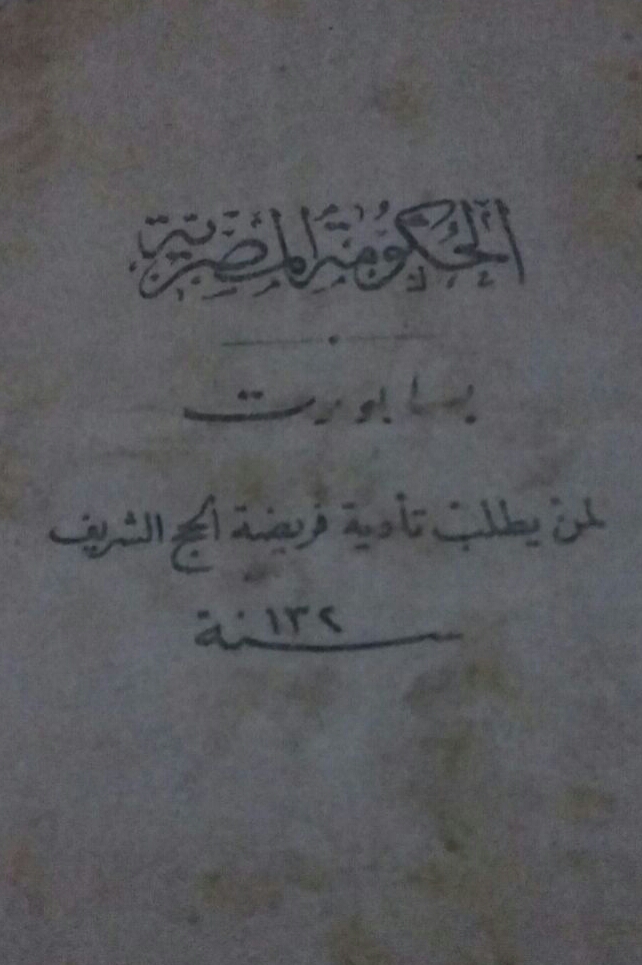 الحكومة المصرية
بسابورت
لمن يطلب تأدية فريضة الحج الشريف
سنة ١٣٢